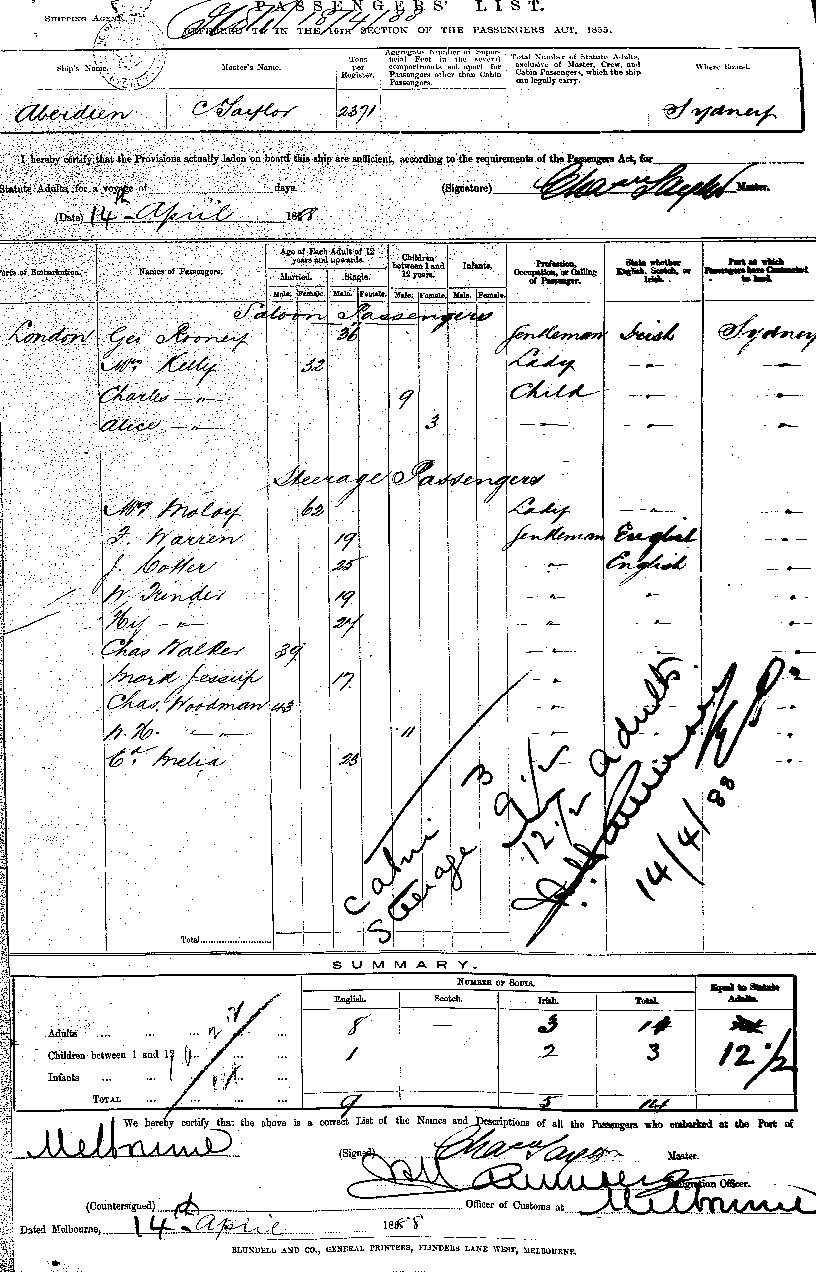 PASSENGERS' LIST.
SHIPPING AGENT 18/4/88
REFERRED TO IN THE 16TH SECTION OF THE PASSENGERS ACT, 1855.
Ship's Name. Master's Name. Tons per Register. Aggregate Number of Superficial Feet in the several compartments set apart for Passengers other than Cabin Passengers. Total Number of Statute Adults, exclusive of Master, Crew, and Cabin Passengers, which the ship can legally carry. Where Bound.
Aberdeen C Taylor 2371 Sydney
I hereby certify that the Provisions actually laden on board this ship are sufficient, according to the requirements of the Passengers Act, for
Statute Adults, for a voyage of days.
(Signature) Chas Taylor Master.
(Date) 14th April 1888
Ports of Embarkation. Names of Passengers. Age of Each Adult of 12 years and upwards. Children between 1 and 12 years. Infants. Profession, Occupation, or Calling of Passenger. State whether English, Scotch, or Irish. Port at which Passengers have Contracted to land.
Married. Single.
Male. Female. Male. Female. Male. Female. Male. Female.
Saloon Passengers
London Geo Rooney 36 Gentleman Irish Sydney
Mrs Kelly 32 Lady - " - - " -
Charles - " - 9 Child - " - - " -
Alice - " - 3 - " - - " - - " -
Steerage Passengers
Mrs Moloy 62 Lady - " - "
F. Warren 19 Gentleman English "
J. Cotter 25 " English "
W. Trender 19 " " "
Hy - " - 24 " " "
Chas Walker 39 - " - - " - - " -
Jessup 17 - " - "
Chas. Woodman 43 - " - "
- " - 11 - " - "
Melia 23 "
Cabin 3
Steerage 9 1/2
12 1/2 adults
14/4/88
Total
SUMMARY.
NUMBER OF SOULS. Equal to Statute Adults.
English. Scotch. Irish. Total.
Adults 8 — 3 11
Children between 1 and 12 1 2 3 12 1/2
Infants
TOTAL 9 5 14
We hereby certify that the above is a correct List of the Names and Descriptions of all the Passengers who embarked at the Port of
Melbourne
(Signed) Chas Taylor Master.
Immigration Officer.
(Countersigned) Officer of Customs at Melbourne
Dated Melbourne, 14th April 1888
BLUNDELL AND CO., GENERAL PRINTERS, FLINDERS LANE WEST, MELBOURNE.